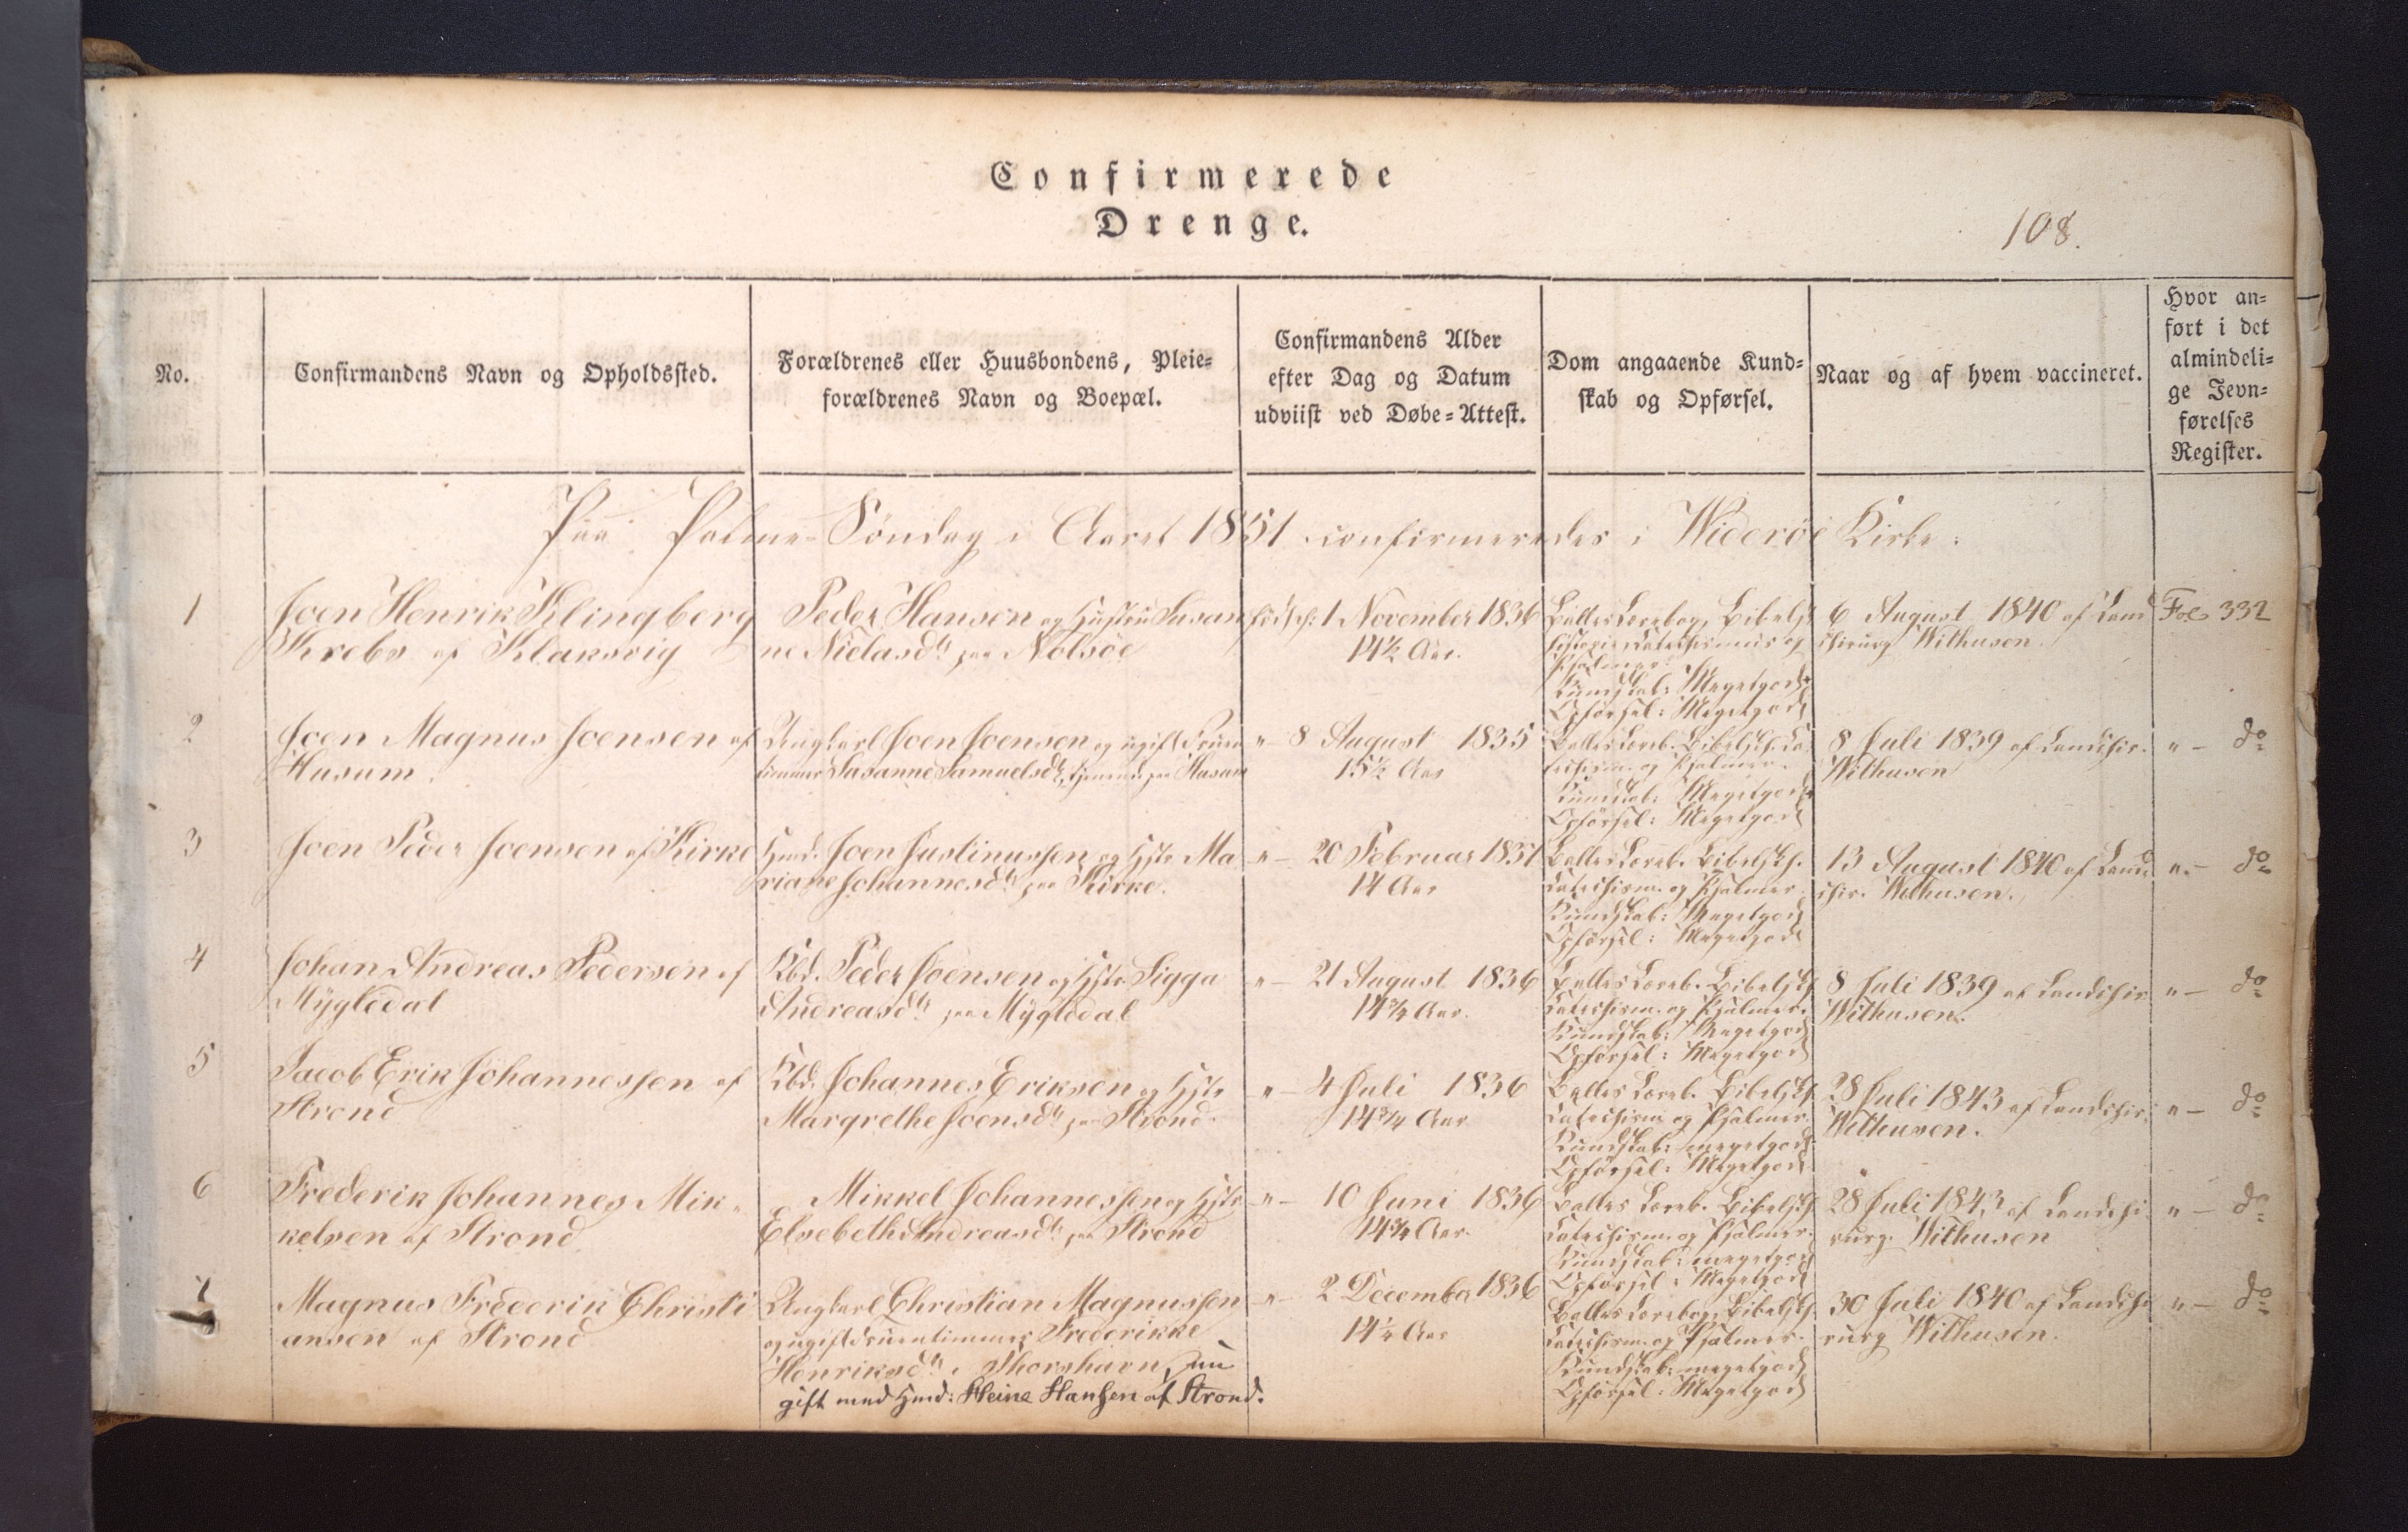 Confirmerede
Drenge.
108.
No.
Confirmandens Navn og Opholdssted.
Forældrenes eller Huusbondens, Pleie=
forældrenes Navn og Boepæl.
Confirmandens Alder
efter Dag og Datum
udviist ved Døbe=Attest.
Dom angaaende Kund=
skab og Opførsel.
Naar og af hvem vaccineret.
Hvor an=
ført i det
almindeli=
ge Jevn=
førelses
Register.
Paa Palme-Søndag i Aaret 1851 confirmeredes i Widerøe Kirke:
1
Joen Henrik Klingberg
Krebs af Klaksvig
Peder Hansen og Hustru Susan
ne Nielasdtr paa Nolsöe
födt d: 1 November 1836
14½ Aar.
Balles Lærebog, Bibelsk
Historie, Katechismus og
Psalmer.
Kundskab: Megetgodt
Opförsel: Megetgod
6 August 1840 af Land
chirurg Withusen.
Fol 332
2
Joen Magnus Joensen af
Husum.
Ungkarl Joen Joensen og ugift Fruen
timmer Susanne Samuelsdtr, tjenende paa Husum
"- 8 August 1835
15½ Aar
Balles Læreb. Bibelsk h. Ka
techism. og Psalmer.
Kundskab: Megetgodt
Opförsel: Megetgod
8 Juli 1839 af Landchir.
Withusen
"- do
3
Joen Peder Joensen af Kirke
Hmd. Joen Justinussen og Hstr Ma
riane Johannesdtr paa Kirke.
"- 20 Februar 1837
14 Aar
Balles Læreb. Bibelsk h.
Katechism. og Psalmer
Kundskab: Megetgod
Opförsel: Megetgod
13 August 1840 af Land
chir. Withusen.
"- do
4
Johan Andreas Pedersen af
Mÿgledal
Kbd. Peder Joensen og Hstr Sigga
Andreasdtr paa Mÿgledal
"- 21 August 1836
14¾ Aar.
Balles Læreb. Bibelsk h
Katechism. og Psalmer.
Kundskab: Megetgod
Opförsel: Megetgod
8 Juli 1839 af Landchir
Withusen.
"- do
5
Jacob Erik Johannessen af
Strond
Kbd. Johannes Eriksen og Hstr
Margrethe Joensdtr paa Strond.
"- 4 Juli 1836
14¾ Aar
Balles Læreb. Bibelsk h.
Katechism og Psalmer.
Kundskab: megetgod
Opförsel: Megetgod
28 Juli 1843 af Landchir.
Withusen.
"- do
6
Frederik Johannes Mik-
kelsen af Strond
Mikkel Johannessen og Hstr
Elsebeth Andreasdtr paa Strond
"- 10 Juni 1836
14¾ Aar.
Balles Læreb. Bibelsk h.
Katechism. og Psalmer.
Kundskab: megetgod
Opförsel: Megetgod
28 Juli 1843 af Landchi
rurg. Withusen
"- do
7
Magnus Frederik Christi
ansen af Strond
Ungkarl Christian Magnussen
og ugift Fruentimmer Frederikke
Henriksdtr i Thorshavn, nu
gift med Hmd: Heine Hansen af Strond.
"- 2 December 1836
14¼ Aar
Balles Lærebog, Bibelsk h.
Katechism. og Psalmer.
Kundskab: megetgod
Opförsel: Megetgod
30 Juli 1840 af Landchi
rurg Withusen.
"- do